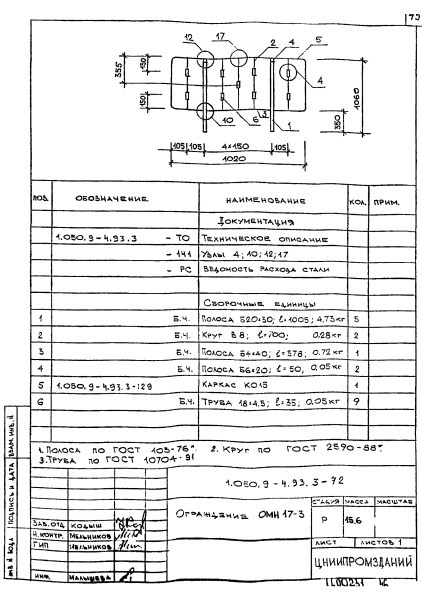 73
12 17 2 4 5
355
150
150
4
1060
350
10 6 3 1
105 105 4×150 105
1020
ПОЗ. ОБОЗНАЧЕНИЕ НАИМЕНОВАНИЕ КОЛ. ПРИМ.
ДОКУМЕНТАЦИЯ
1.050.9-4.93.3 - ТО ТЕХНИЧЕСКОЕ ОПИСАНИЕ
- 141 УЗЛЫ 4; 10; 12; 17
- РС ВЕДОМОСТЬ РАСХОДА СТАЛИ
СБОРОЧНЫЕ ЕДИНИЦЫ
1 Б.Ч. ПОЛОСА Б20×30; ℓ=1005; 4.73кг 5
2 Б.Ч. КРУГ В8; ℓ=700; 0.28кг 2
3 Б.Ч. ПОЛОСА Б4×40; ℓ=578; 0.72кг 1
4 Б.Ч. ПОЛОСА Б6×20; ℓ=50, 0.05кг 2
5 1.050.9-4.93.3-129 КАРКАС КО15 1
6 Б.Ч. ТРУБА 18×4.5; ℓ=35; 0,05кг 9
1. ПОЛОСА ПО ГОСТ 103-76*. 2. КРУГ ПО ГОСТ 2590-88*.
3. ТРУБА ПО ГОСТ 10704-91
1.050.9-4.93.3-72
ОГРАЖДЕНИЕ ОМН 17-3
СТАДИЯ МАССА МАСШТАБ
Р 15,6
ЛИСТ ЛИСТОВ 1
ЦНИИПРОМЗДАНИЙ
ЗАВ. ОТД КОДЫШ
Н.КОНТР. МЕЛЬНИКОВ
ГИП МЕЛЬНИКОВ
ИНЖ. МАЛЫШЕВА
ИНВ. № ПОДЛ ПОДПИСЬ И ДАТА ВЗАМ. ИНВ. №